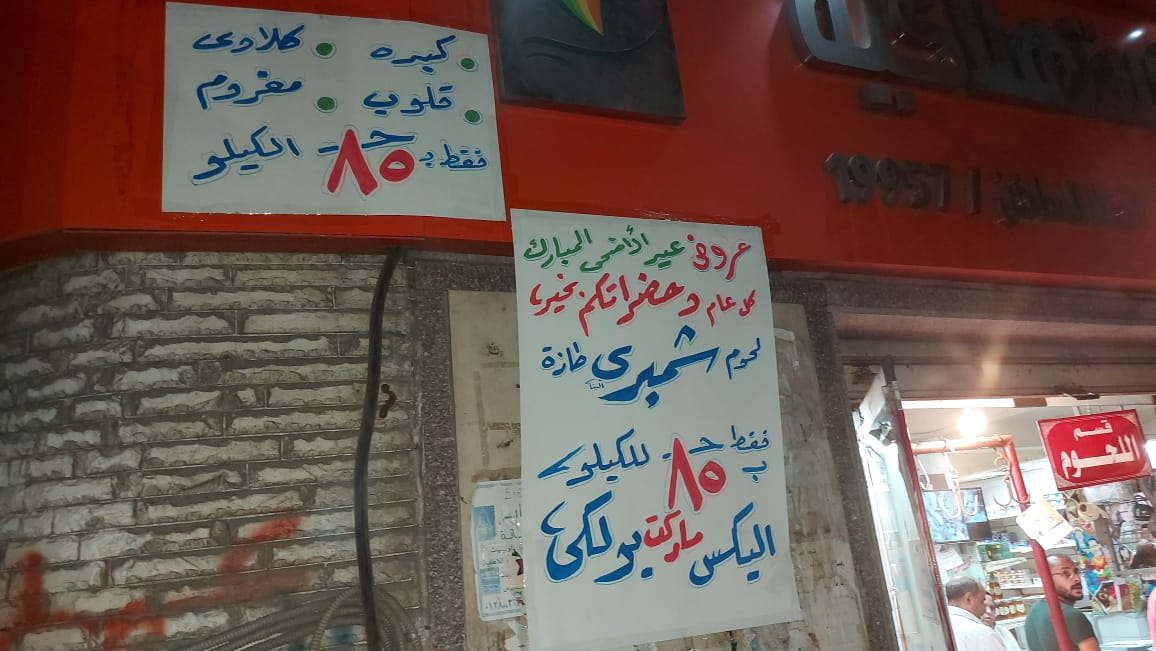 كبيده • كلاوى
قلوب • مفروم
فقط بـ ٨٥ جـ الكيلو
عروض عيد الأضحى المبارك
كل عام وحضراتكم بخير
لحوم شمبري طازة
فقط بـ ٨٥ جـ للكيلو
اليكس ماركت بولكلى
19957
قسم
اللحوم